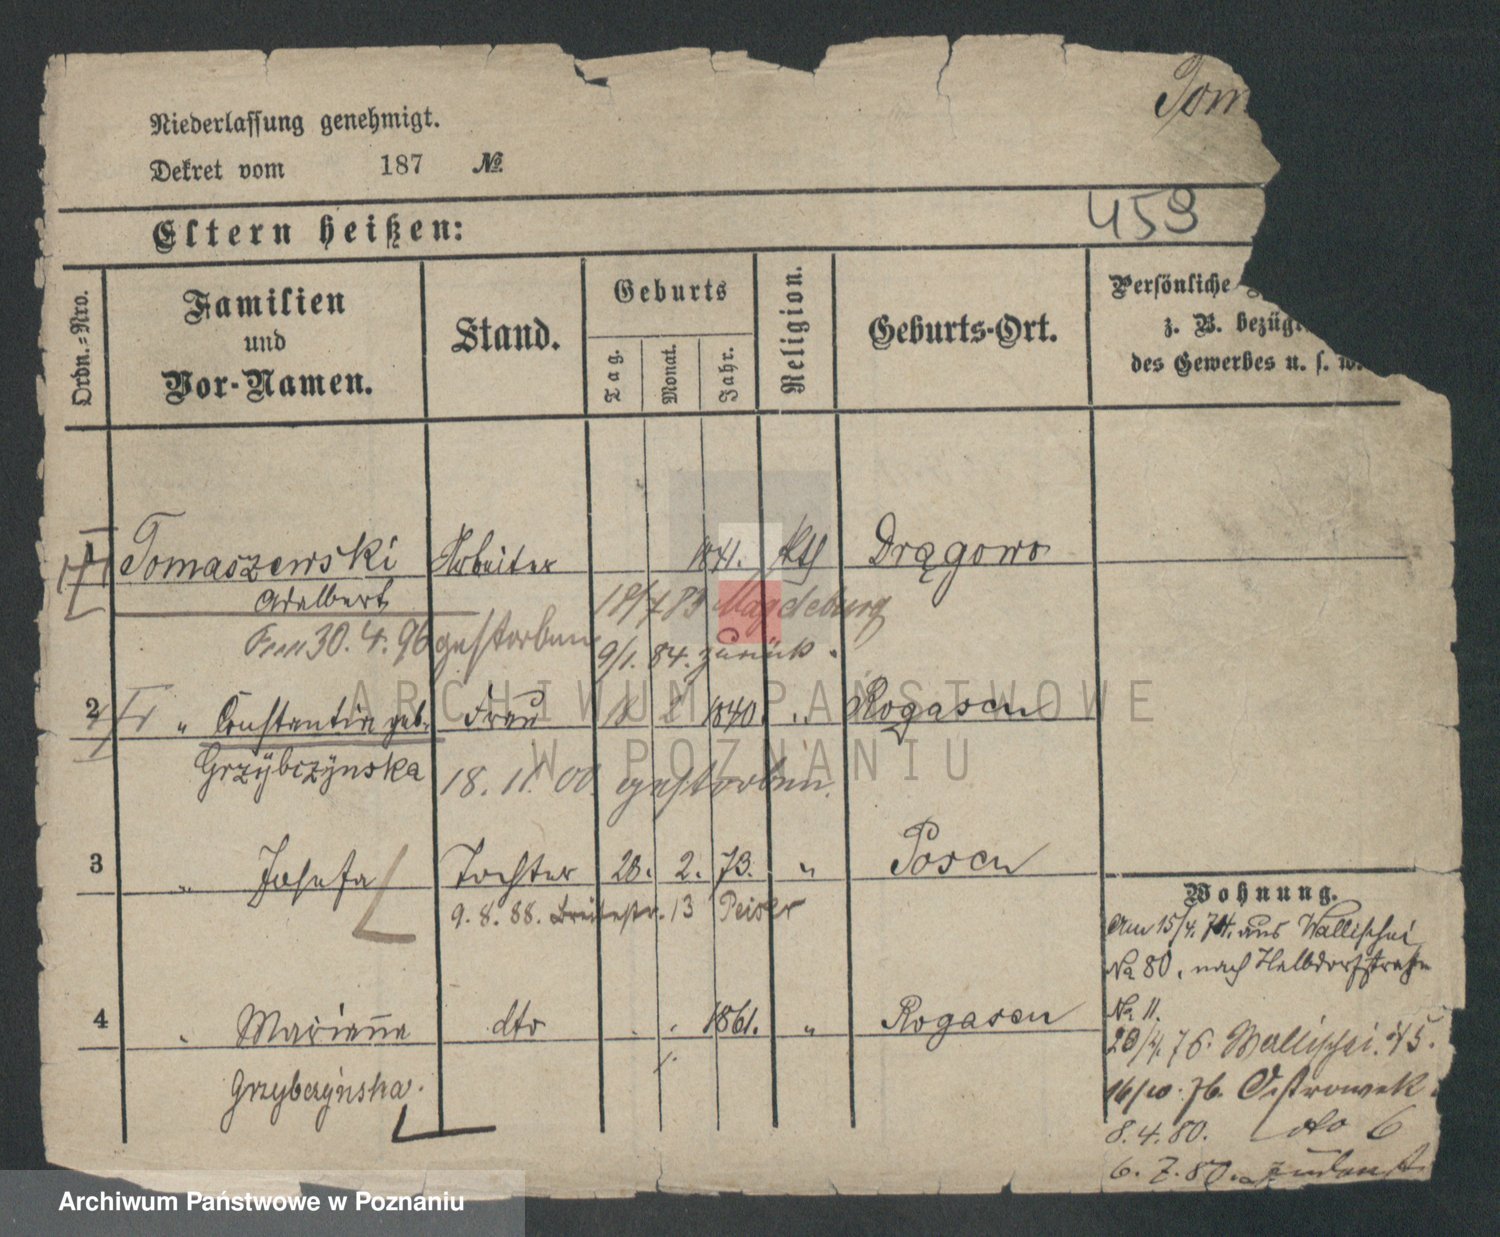 Tom
Niederlassung genehmigt.
Dekret vom 187 No.
Eltern heißen:
459
Ordn.-Nro.
Familien
und
Vor-Namen.
Stand.
Geburts
Tag.
Monat.
Jahr.
Religion.
Geburts-Ort.
Persönliche
z. B. bezügl
des Gewerbes u. s. w.
Tomaszewski Arbeiter 1841. kth Drągowo
Adelbert
18/7 83 Magdeburg
30. 4. 96 gestorben
9/1. 84. zurück.
2 " Constantia geb. Frau 1840. " Rogasen
Grzÿbczÿnska
18. 11. 00. gestorben.
3 " Josefa Tochter 28. 2. 73. " Posen
9. 8. 88. Breitestr. 13 Peiser
4 " Marianna dto 1861. " Rogasen
Grzybczÿnska.
Wohnung.
Am 15/4. 74. aus Wallischei
No 80, nach Halbdorfstraße
No 11.
20/4. 76. Wallischei 45.
16/10. 76. Ostrowek
8. 4. 80. dto 6
6. 7. 80.
ARCHIWUM PAŃSTWOWE
W POZNANIU
Archiwum Państwowe w Poznaniu